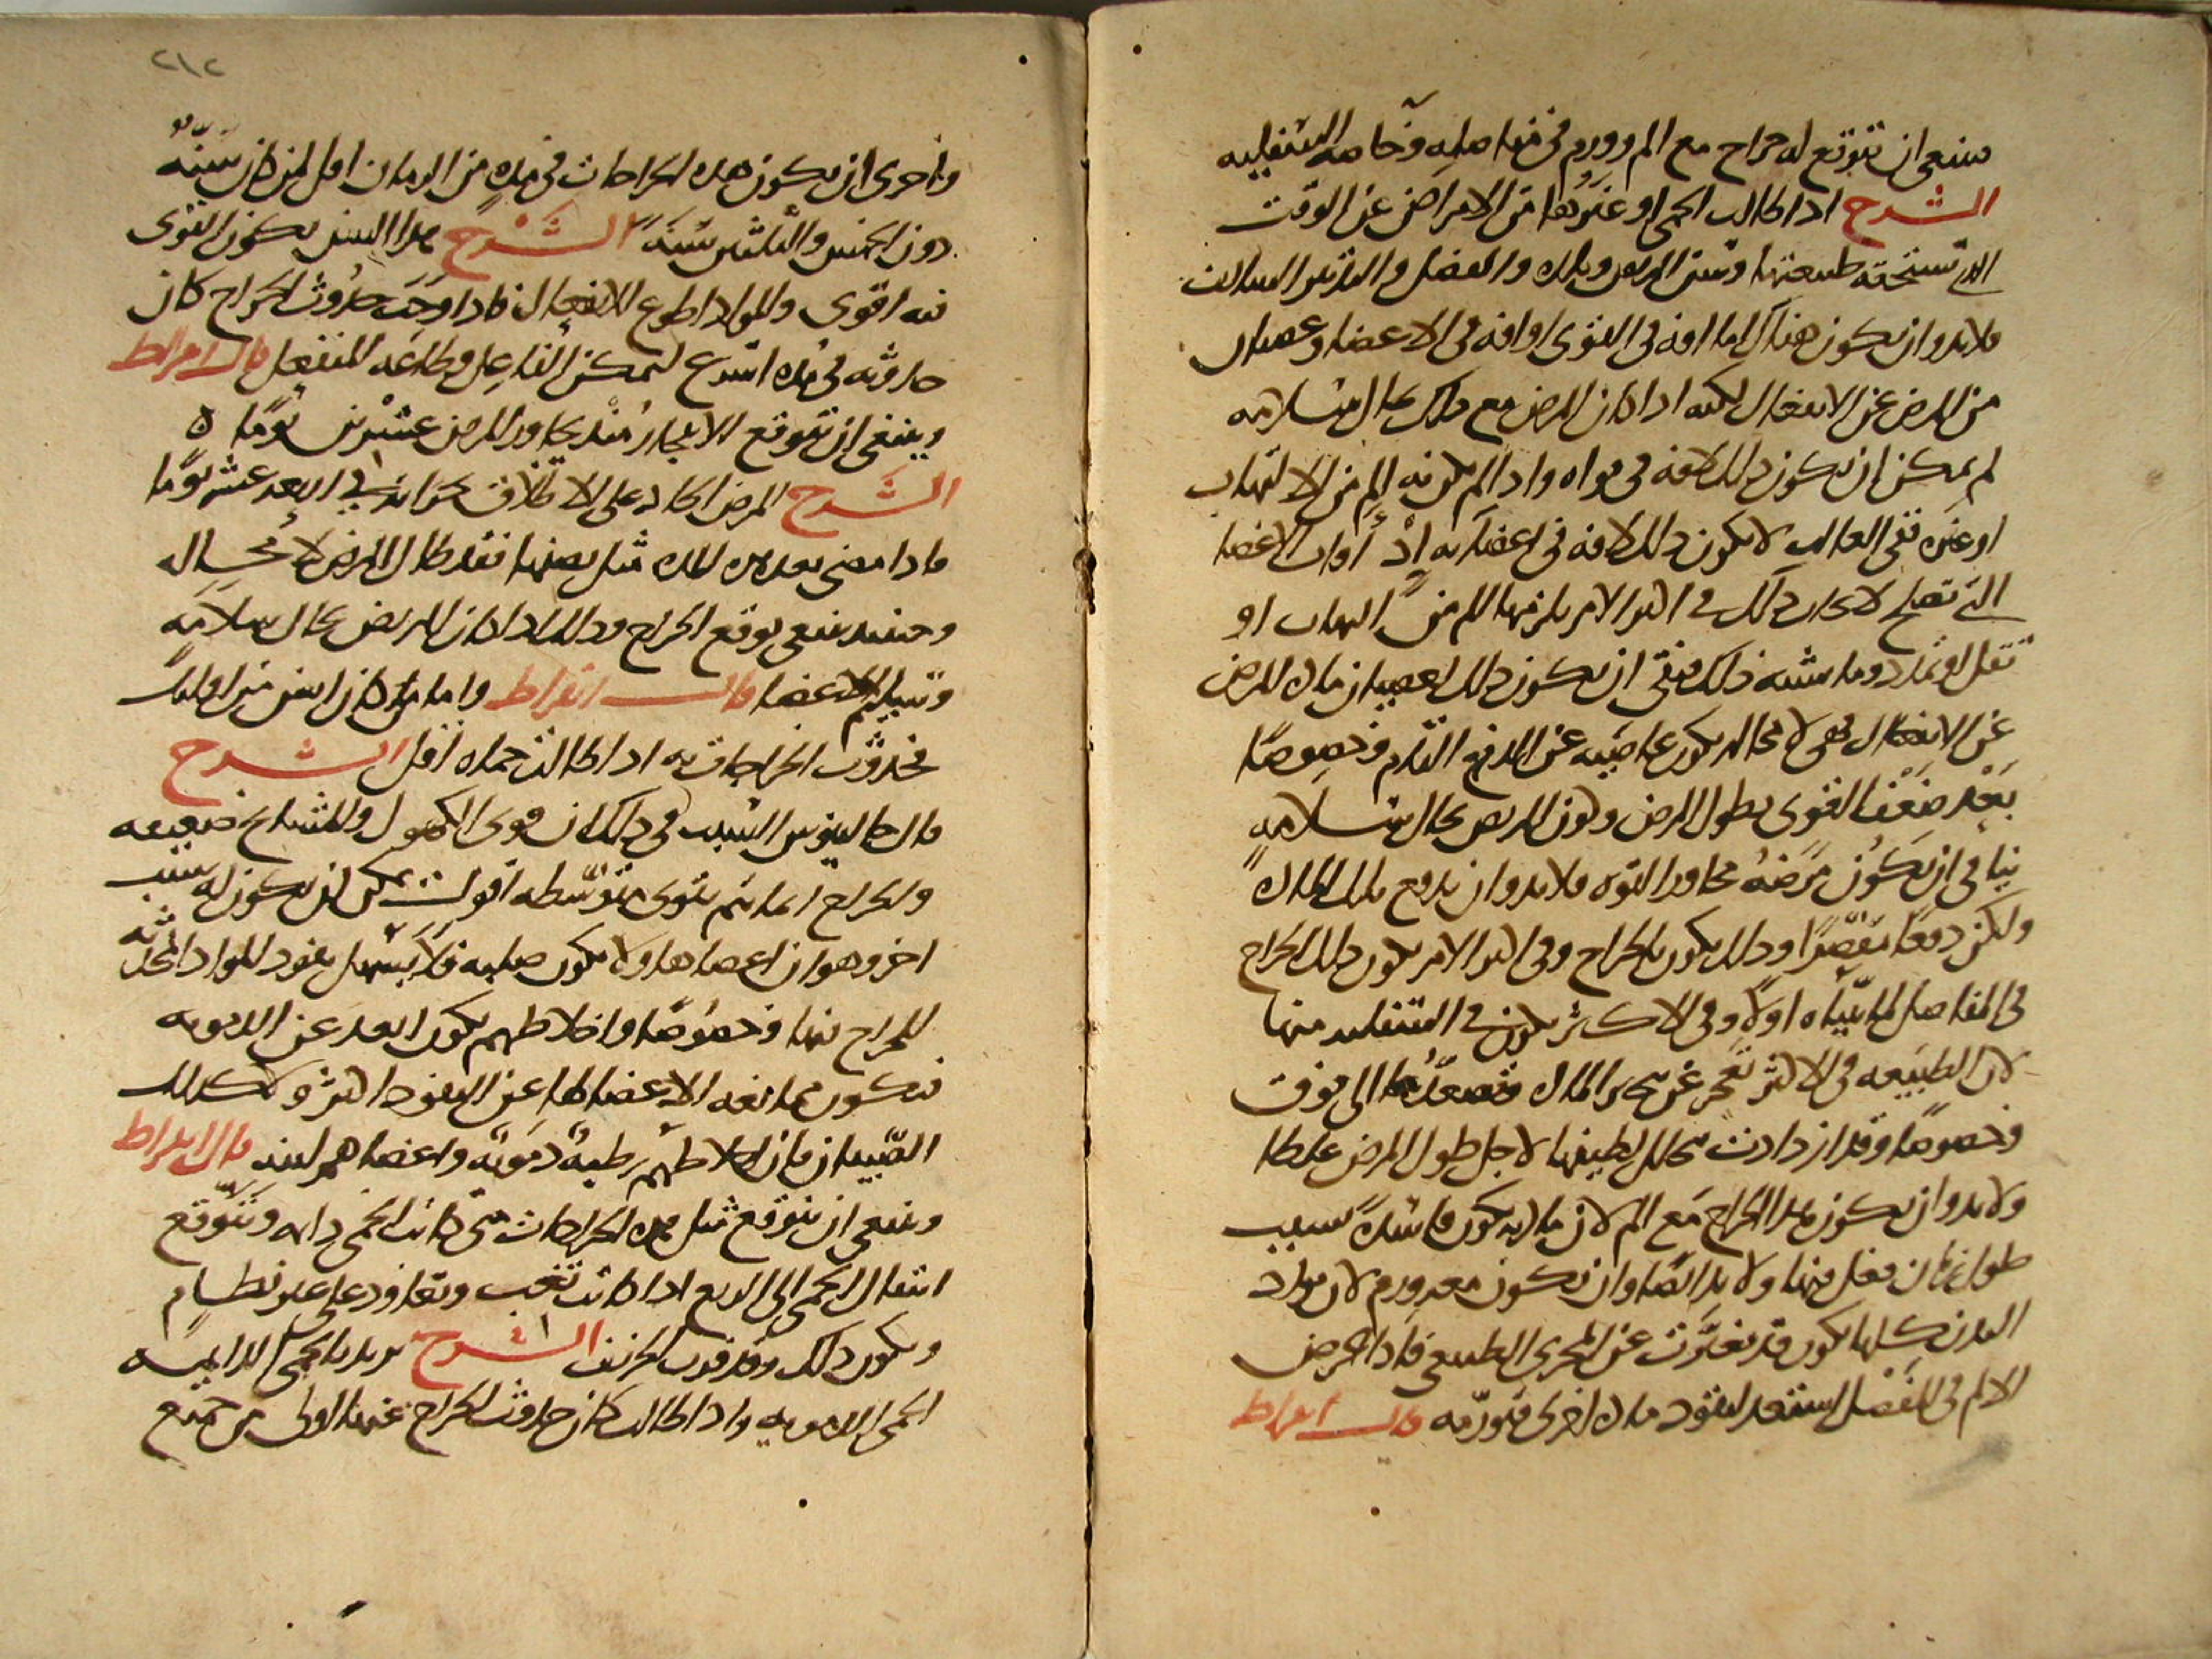 فينبغي ان تتوقع له خراج مع الم وورم في مفاصله وخاصة السفلية
الشرح اذا طالت الحمى او غيرها من الامراض عن الوقت
الذي تستحقه طبيعتها وسن المريض وبلده والفصل والتدبير السالف
فلابد وان يكون هناك اما افة في القوى او افة في الاعضا وعصيان
من المرض عن الانفعال لكنه اذا كان المرض مع ذلك بحال سلامة
لم يمكن ان يكون ذلك لافة في قواه واذا لم يكن به الم من الالتهاب
او غيره ففي الغالب لا يكون ذلك لافة في اعضايه اذ افات الاعضا
التي تصلح لاحداث ذلك في اكثر الامر يلزمها الم من التهاب او
ثقل او تمدد وما يشبه ذلك فبقي ان يكون ذلك لعصيان مادة المرض
عن الانفعال فهي لا محالة يكون عاصية عن الدفع التام وخصوصا
بعد ضعف القوى بطول المرض وكون المريض بحال سلامة
ينافي ان يكون مرضه مجاوز القوة فلابد وان يدفع تلك المادة
ولكن دفعا مقصرا وذلك يكون بالخراج وفي اكثر الامر يكون ذلك الخراج
في المفاصل لما بيناه اولا وفي الاكثر يكون في السفلية منها
لان الطبيعة في الاكثر تعجز عن تحريك المادة وتصعدها الى فوق
وخصوصا وقد ازدادت بتحلل لطيفها لاجل طول المرض غلظا
ولابد وان يكون هذا الخراج مع الم لان مادته يكون فاسدة بسبب
طول زمان فعل فيها ولابد ايضا وان تكون معه ورم لان مواد
البدن كلها يكون قد تغيرت عن المجرى الطبيعي فاذا عرض
الالم في المفصل استعد لنفوذ مادة اخرى فتورمه قال ابقراط
٢١٢
واحرى ان يكون هذه الخراجات في مدة من الزمان اقل لمن كان سنه
دون الخمس والثلثين سنة الشرح هذا السن يكون القوى
فيه اقوى والمواد اطوع للانفعال فاذا وجب حدوث الخراج كان
حدوثه في مدة اسرع لتمكن الفاعل وطاعة المنفعل قال ابقراط
وينبغي ان تتوقع الانفجار منذ يجاوز المرض عشرين يوما ه
الشرح المرض الحاد على الاطلاق بحرانه في اربعة عشر يوما
فاذا مضى بعد هذه المدة مثل نصفها فقد طال المرض لا محالة
وحينئذ ينبغي توقع الخراج وذلك اذا كان المريض بحال سلامة
وسليم الاعضا قال ابقراط واما من كان اسن من اوليك
فحدوث الخراجات به اذا طالت حماه اقل الشرح
قال جالينوس السبب في ذلك ان قوى الكهول والمشايخ ضعيفة
والخراج انما يتم بقوى متوسطة اقول يمكن ان يكون له سبب
اخر وهو ان اعضاهاولا يكون صلبة فلا يسهل نفوذ المواد المحدثة
للخراج فيها وخصوصا واخلاطهم يكون ابعد عن الدموية
فيكون ممانعة الاعضا لها عن النفوذ اكثر وكذلك
الصبيان فان اخلاطهم رطبة دموية واعضاهم لينة قال ابقراط
وينبغي ان يتوقع مثل هذه الخراجات متى كانت الحمى دايمة وتتوقع
انتقال الحمى الى الربع اذا كانت تغب وتعاود على غير نظام
ويكون ذلك وقد قرب الخريف الشرح يريد بالحمى الدايمة
الحمى الدموية واذا طالت كان حدوث الخراج عنها اولى من جميع